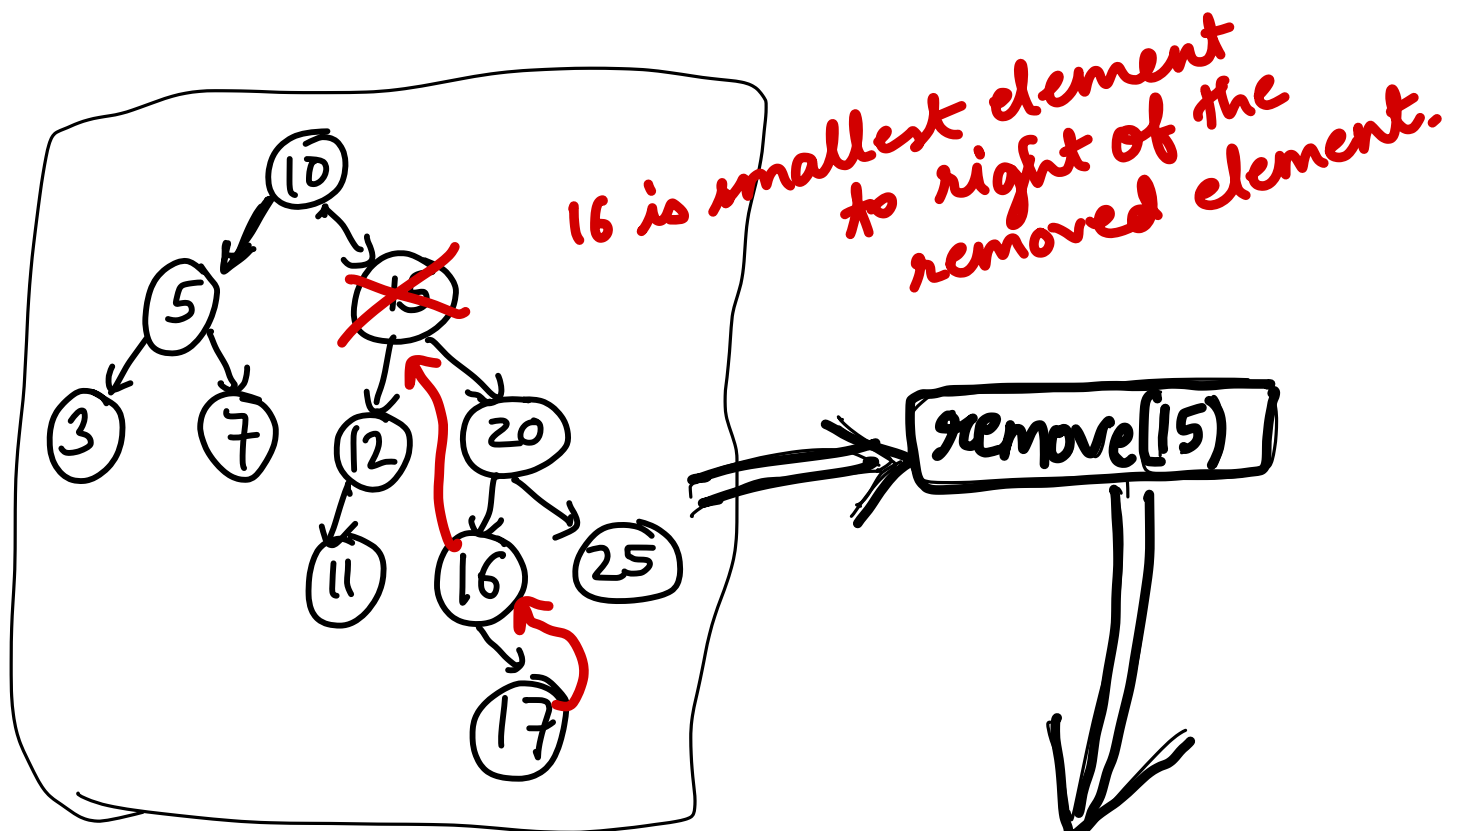 16 is smallest element
to right of the
removed element.
10
5
15
3
7
12
20
11
16
25
17
remove(15)